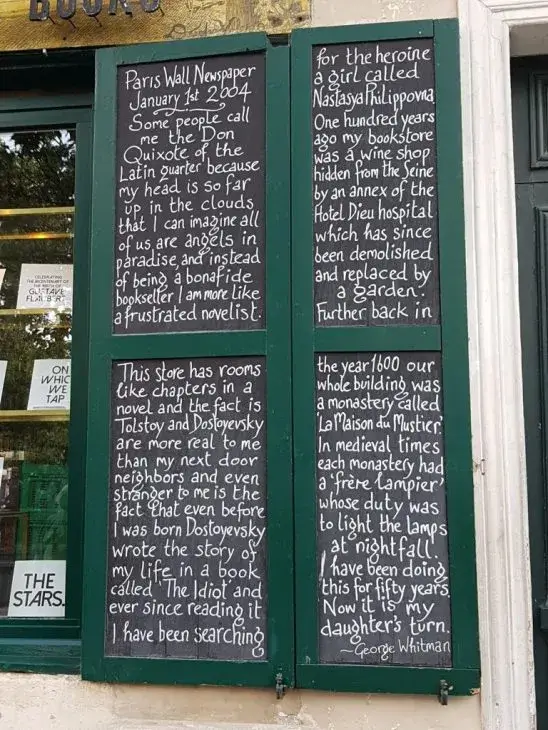 BOOKS
Paris Wall Newspaper
January 1st 2004
Some people call
me the Don
Quixote of the
Latin quarter because
my head is so far
up in the clouds
that I can imagine all
of us are angels in
paradise, and instead
of being a bonafide
bookseller I am more like
a frustrated novelist.
This store has rooms
like chapters in a
novel and the fact is
Tolstoy and Dostoyevsky
are more real to me
than my next door
neighbors and even
stranger to me is the
fact that even before
I was born Dostoyevsky
wrote the story of
my life in a book
called 'The Idiot' and
ever since reading it
I have been searching
for the heroine
a girl called
Nastasya Philippovna
One hundred years
ago my bookstore
was a wine shop
hidden from the Seine
by an annex of the
Hotel Dieu hospital
which has since
been demolished
and replaced by
a garden.
Further back in
the year 1600 our
whole building was
a monastery called
'La Maison du Mustier'.
In medieval times
each monastery had
a 'frère lampier'
whose duty was
to light the lamps
at nightfall.
I have been doing
this for fifty years.
Now it is my
daughter's turn.
~George Whitman
CELEBRATING
THE BICENTENARY OF
THE BIRTH OF
GUSTAVE
FLAUBERT
ON
WHICH
WE
TAP
THE
STARS.